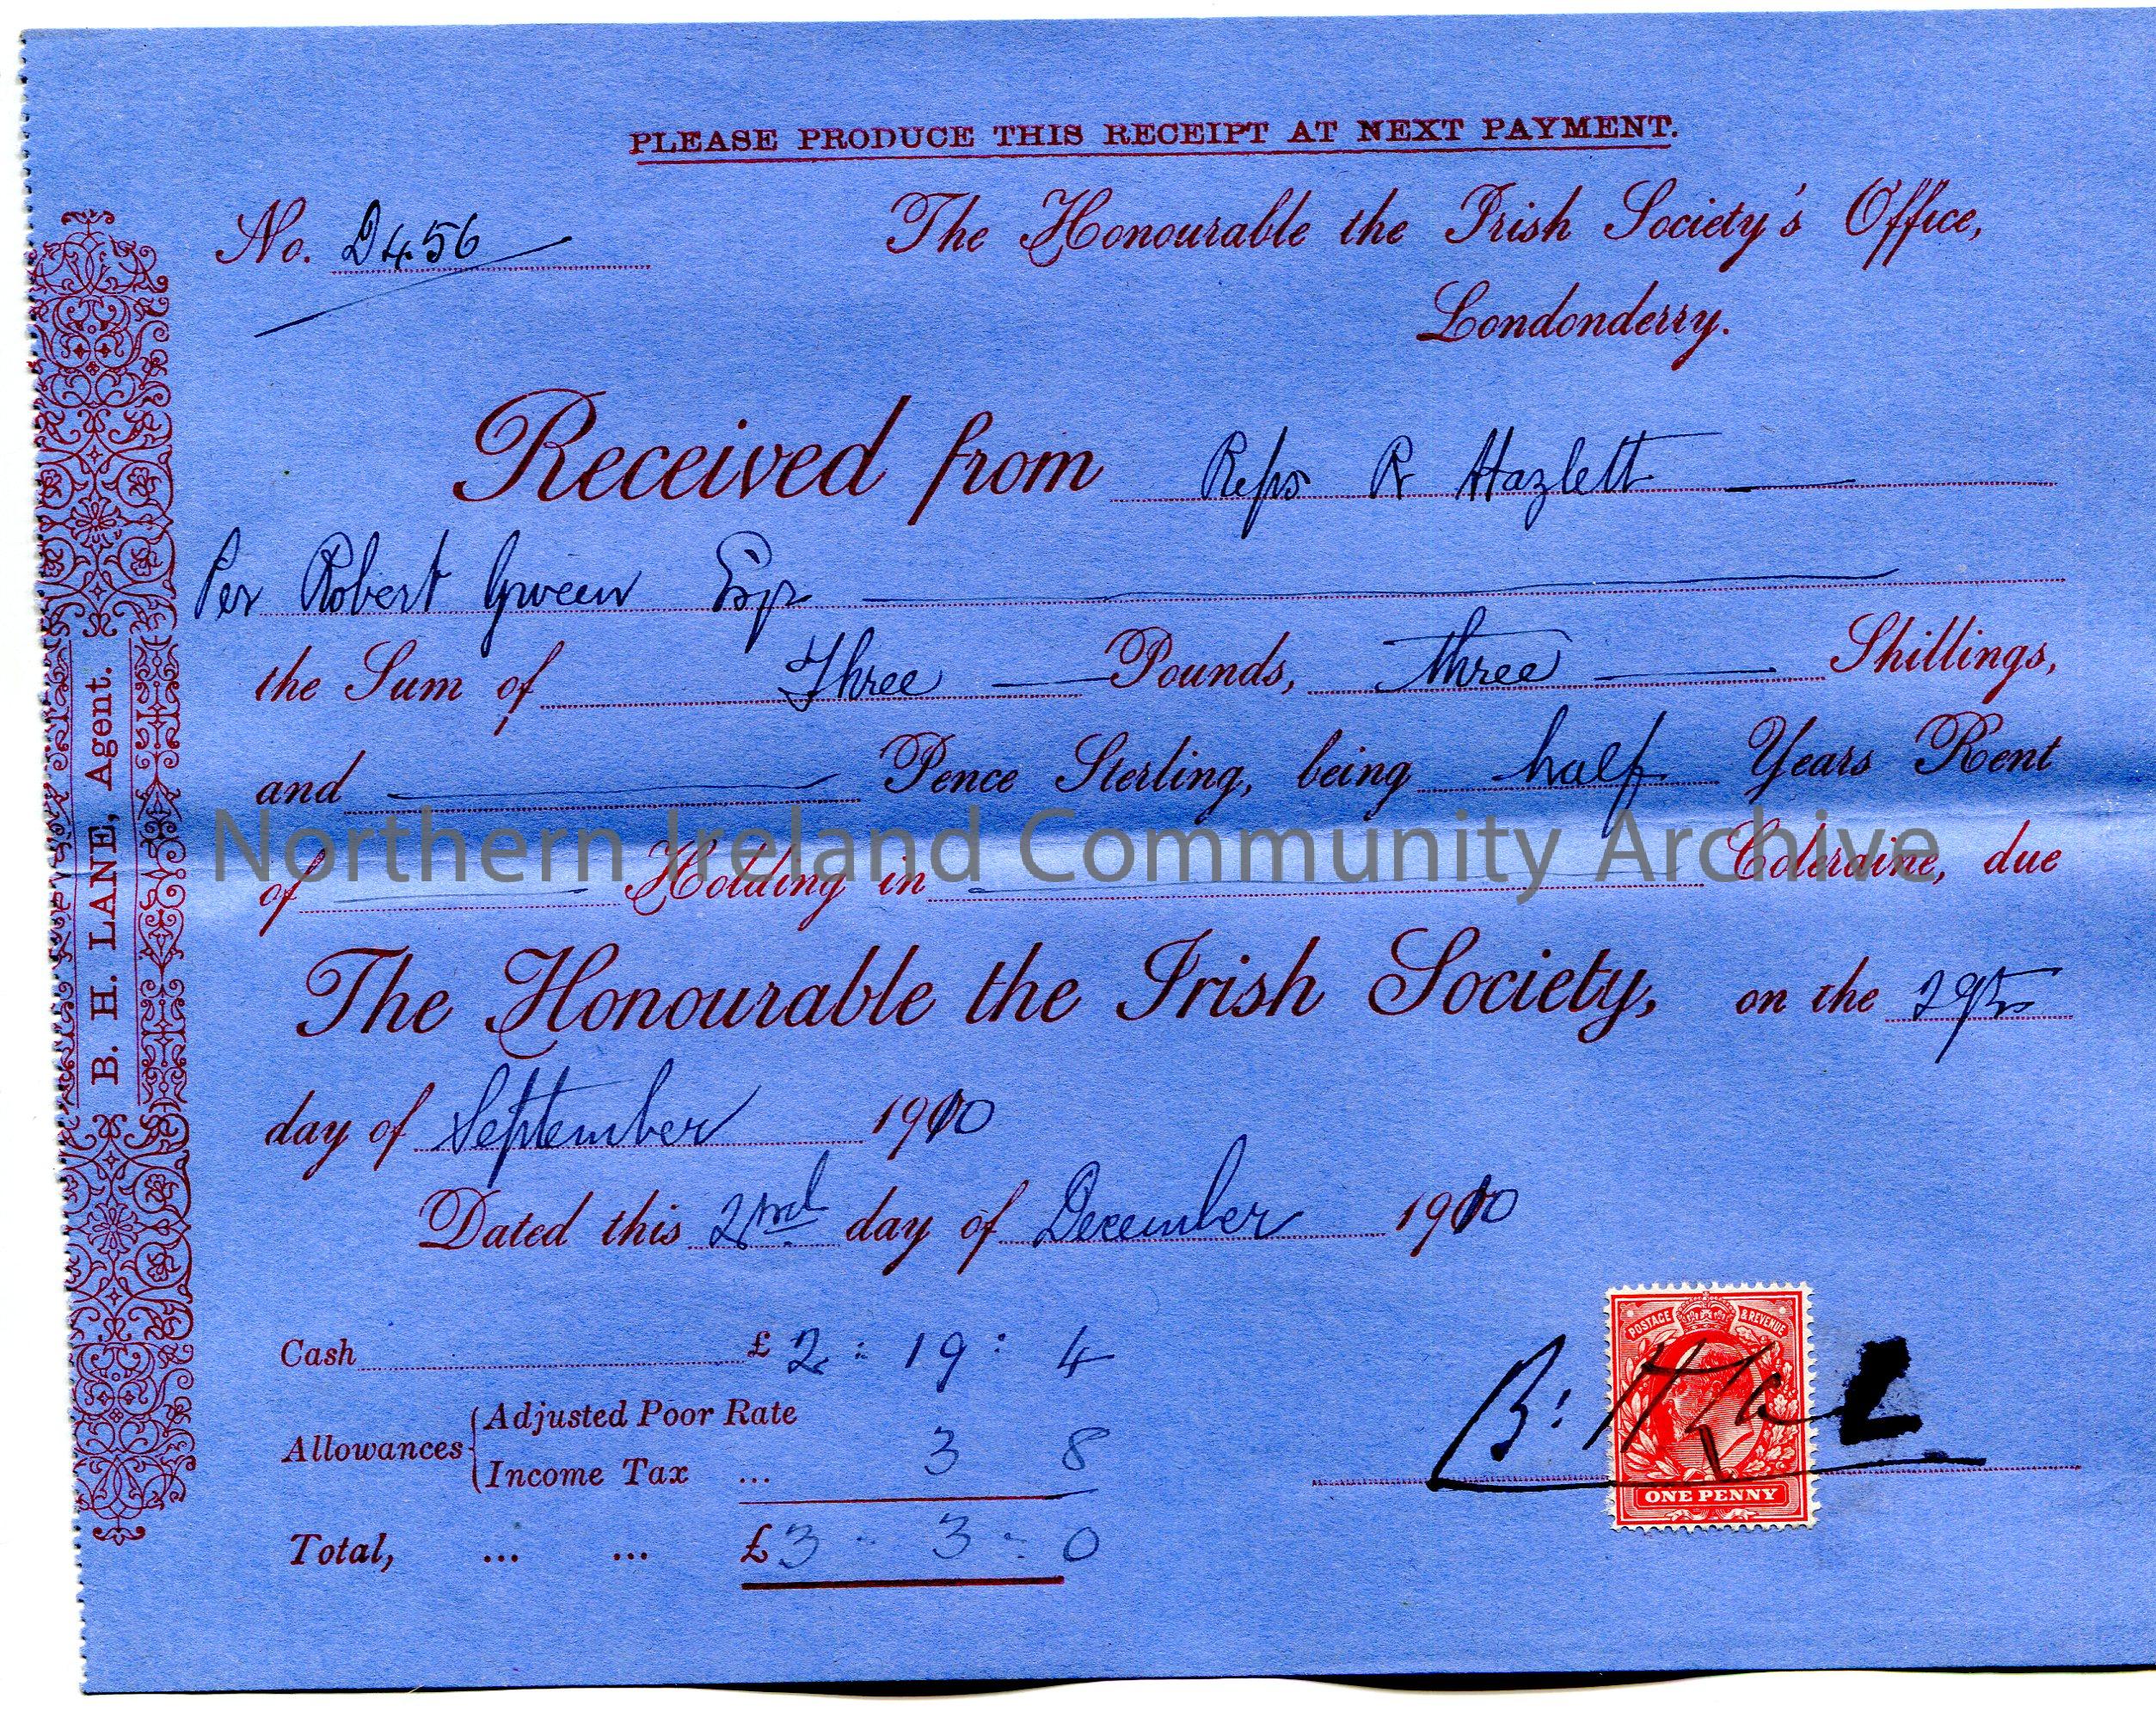 PLEASE PRODUCE THIS RECEIPT AT NEXT PAYMENT.
No. 2456
The Honourable the Irish Society's Office,
Londonderry.
Received from Reps R Hazlett
Per Robert Green Esqr
the Sum of Three Pounds, three Shillings,
and Pence Sterling, being half Years Rent
Northern Ireland Community Archive
of Holding in Coleraine, due
The Honourable the Irish Society, on the 29th
day of September 1910
Dated this 2nd day of December 1910
Cash £ 2 : 19 : 4
Allowances { Adjusted Poor Rate
Income Tax ... 3 8
Total, ... ... £3 - 3 : 0
B. H. Lane
POSTAGE & REVENUE
ONE PENNY
B. H. LANE, Agent.